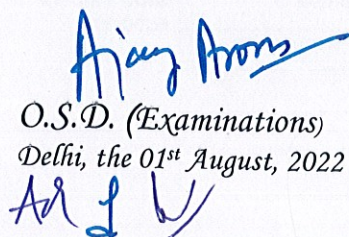 Ajay Arora
O.S.D. (Examinations)
Delhi, the 01st August, 2022